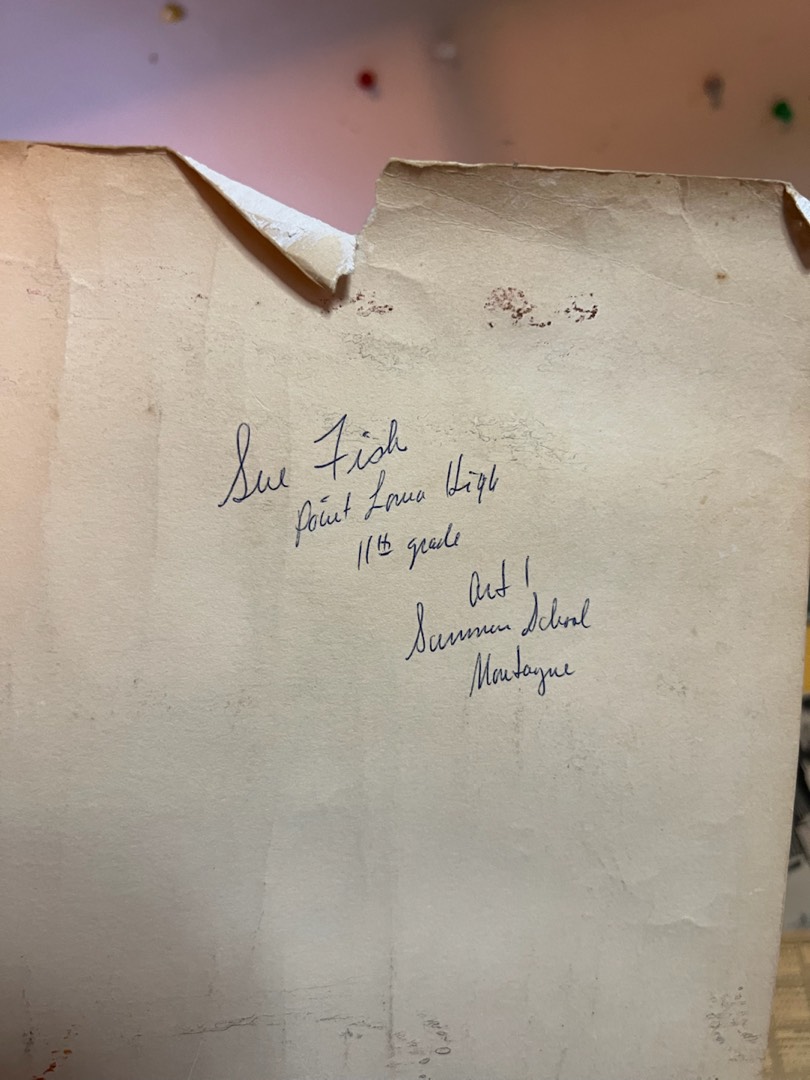 Sue Fish
Point Loma High
11th grade
Art 1
Summer School
Montague